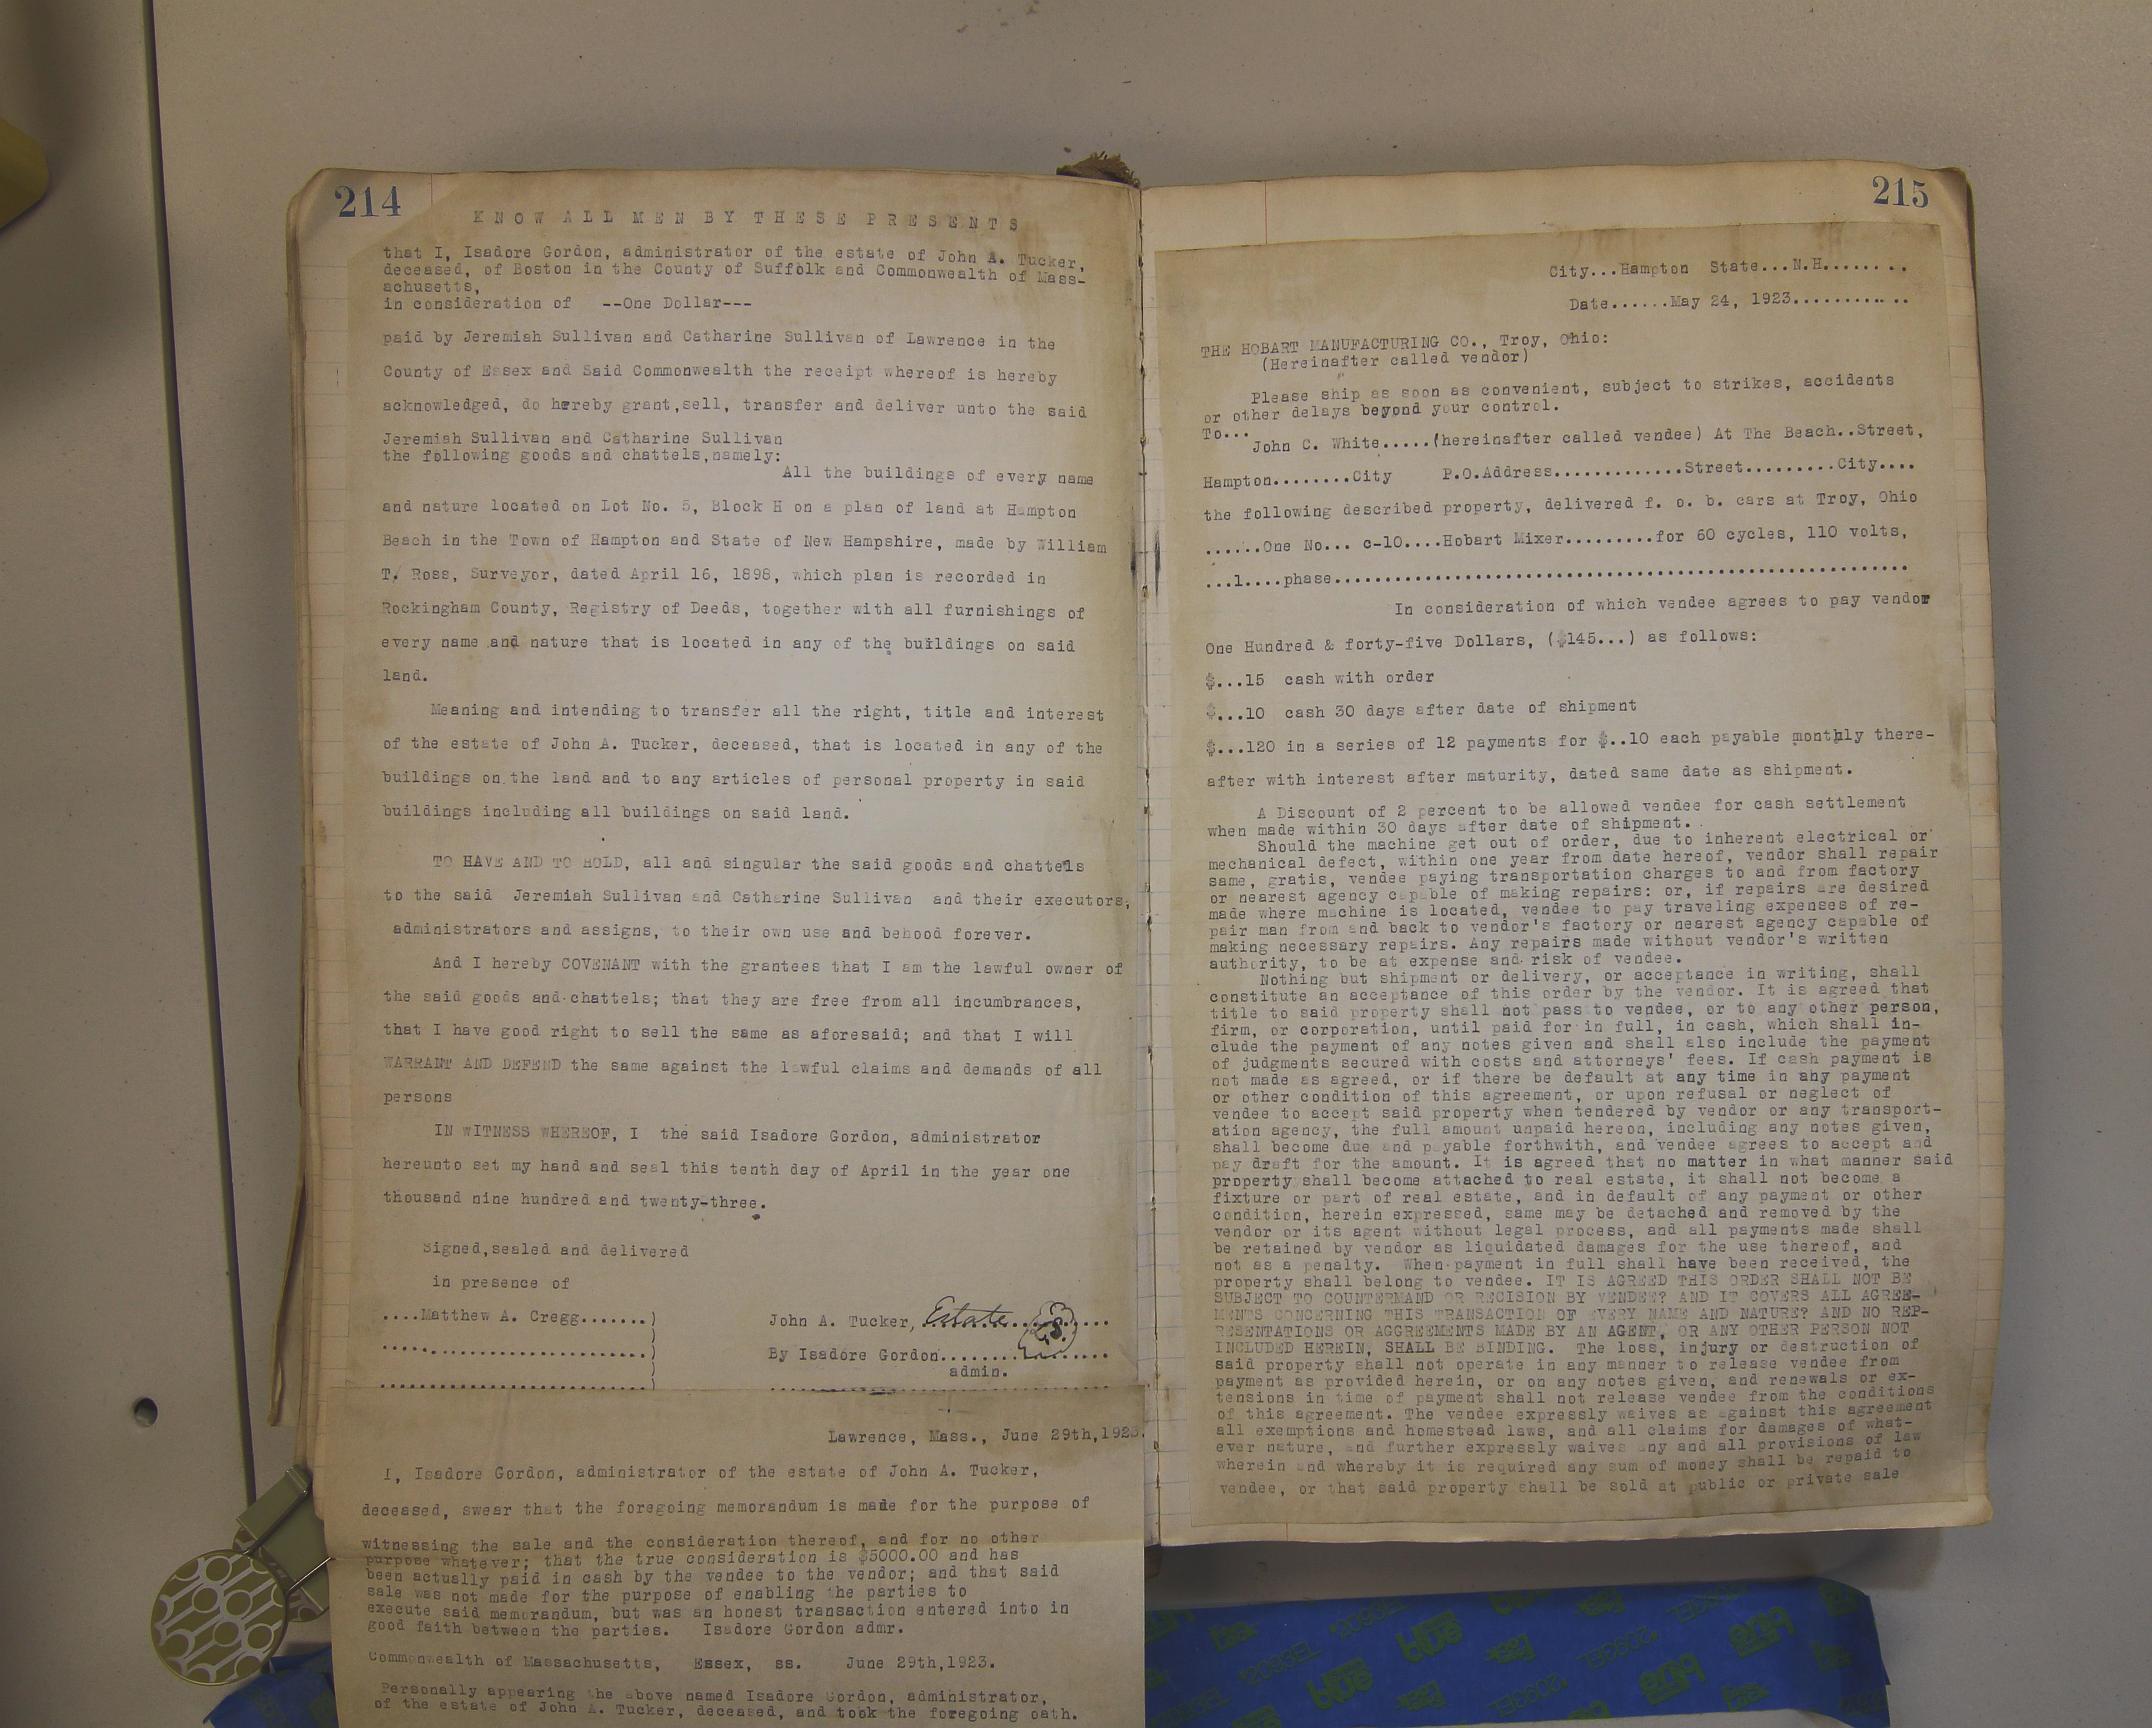 214
KNOW ALL MEN BY THESE PRESENTS
that I, Isadore Gordon, administrator of the estate of John A. Tucker,
deceased, of Boston in the County of Suffolk and Commonwealth of Mass-
achusetts,
in consideration of --One Dollar---
paid by Jeremiah Sullivan and Catharine Sullivan of Lawrence in the
County of Essex and Said Commonwealth the receipt whereof is hereby
acknowledged, do hereby grant,sell, transfer and deliver unto the said
Jeremiah Sullivan and Catharine Sullivan
the following goods and chattels,namely:
All the buildings of every name
and nature located on Lot No. 5, Block H on a plan of land at Hampton
Beach in the Town of Hampton and State of New Hampshire, made by William
T. Ross, Surveyor, dated April 16, 1898, which plan is recorded in
Rockingham County, Registry of Deeds, together with all furnishings of
every name and nature that is located in any of the buildings on said
land.
Meaning and intending to transfer all the right, title and interest
of the estate of John A. Tucker, deceased, that is located in any of the
buildings on the land and to any articles of personal property in said
buildings including all buildings on said land.
TO HAVE AND TO HOLD, all and singular the said goods and chattels
to the said Jeremiah Sullivan and Catharine Sullivan and their executors,
administrators and assigns, to their own use and behood forever.
And I hereby COVENANT with the grantees that I am the lawful owner of
the said goods and chattels; that they are free from all incumbrances,
that I have good right to sell the same as aforesaid; and that I will
WARRANT AND DEFEND the same against the lawful claims and demands of all
persons
IN WITNESS WHEREOF, I the said Isadore Gordon, administrator
hereunto set my hand and seal this tenth day of April in the year one
thousand nine hundred and twenty-three.
Signed,sealed and delivered
in presence of
....Matthew A. Cregg.......)
John A. Tucker, Estate
L.S.
By Isadore Gordon
admin.
Lawrence, Mass., June 29th,1923.
I, Isadore Gordon, administrator of the estate of John A. Tucker,
deceased, swear that the foregoing memorandum is made for the purpose of
witnessing the sale and the consideration thereof, and for no other
purpose whatever; that the true consideration is $5000.00 and has
been actually paid in cash by the vendee to the vendor; and that said
sale was not made for the purpose of enabling the parties to
execute said memorandum, but was an honest transaction entered into in
good faith between the parties. Isadore Gordon admr.
Commonwealth of Massachusetts, Essex, ss. June 29th,1923.
Personally appearing the above named Isadore Gordon, administrator,
of the estate of John A. Tucker, deceased, and took the foregoing oath.
215
City...Hampton State...N.H.......
Date......May 24, 1923............
THE HOBART MANUFACTURING CO., Troy, Ohio:
(Hereinafter called vendor)
Please ship as soon as convenient, subject to strikes, accidents
or other delays beyond your control.
To...
John C. White.....(hereinafter called vendee) At The Beach..Street,
Hampton........City P.O.Address.............Street.........City....
the following described property, delivered f. o. b. cars at Troy, Ohio
......One No... c-10....Hobart Mixer.........for 60 cycles, 110 volts,
...1....phase..........................................................
In consideration of which vendee agrees to pay vendor
One Hundred & forty-five Dollars, ($145...) as follows:
$...15 cash with order
$...10 cash 30 days after date of shipment
$...120 in a series of 12 payments for $..10 each payable monthly there-
after with interest after maturity, dated same date as shipment.
A Discount of 2 percent to be allowed vendee for cash settlement
when made within 30 days after date of shipment.
Should the machine get out of order, due to inherent electrical or
mechanical defect, within one year from date hereof, vendor shall repair
same, gratis, vendee paying transportation charges to and from factory
or nearest agency capable of making repairs: or, if repairs are desired
made where machine is located, vendee to pay traveling expenses of re-
pair man from and back to vendor's factory or nearest agency capable of
making necessary repairs. Any repairs made without vendor's written
authority, to be at expense and risk of vendee.
Nothing but shipment or delivery, or acceptance in writing, shall
constitute an acceptance of this order by the vendor. It is agreed that
title to said property shall not pass to vendee, or to any other person,
firm, or corporation, until paid for in full, in cash, which shall in-
clude the payment of any notes given and shall also include the payment
of judgments secured with costs and attorneys' fees. If cash payment is
not made as agreed, or if there be default at any time in any payment
or other condition of this agreement, or upon refusal or neglect of
vendee to accept said property when tendered by vendor or any transport-
ation agency, the full amount unpaid hereon, including any notes given,
shall become due and payable forthwith, and vendee agrees to accept and
pay draft for the amount. It is agreed that no matter in what manner said
property shall become attached to real estate, it shall not become a
fixture or part of real estate, and in default of any payment or other
condition, herein expressed, same may be detached and removed by the
vendor or its agent without legal process, and all payments made shall
be retained by vendor as liquidated damages for the use thereof, and
not as a penalty. When payment in full shall have been received, the
property shall belong to vendee. IT IS AGREED THIS ORDER SHALL NOT BE
SUBJECT TO COUNTERMAND OR RECISION BY VENDEE? AND IT COVERS ALL AGREE-
MENTS CONCERNING THIS TRANSACTION OF EVERY NAME AND NATURE? AND NO REP-
RESENTATIONS OR AGGREEMENTS MADE BY AN AGENT, OR ANY OTHER PERSON NOT
INCLUDED HEREIN, SHALL BE BINDING. The loss, injury or destruction of
said property shall not operate in any manner to release vendee from
payment as provided herein, or on any notes given, and renewals or ex-
tensions in time of payment shall not release vendee from the conditions
of this agreement. The vendee expressly waives as against this agreement
all exemptions and homestead laws, and all claims for damages of what-
ever nature, and further expressly waives any and all provisions of law
wherein and whereby it is required any sum of money shall be repaid to
vendee, or that said property shall be sold at public or private sale